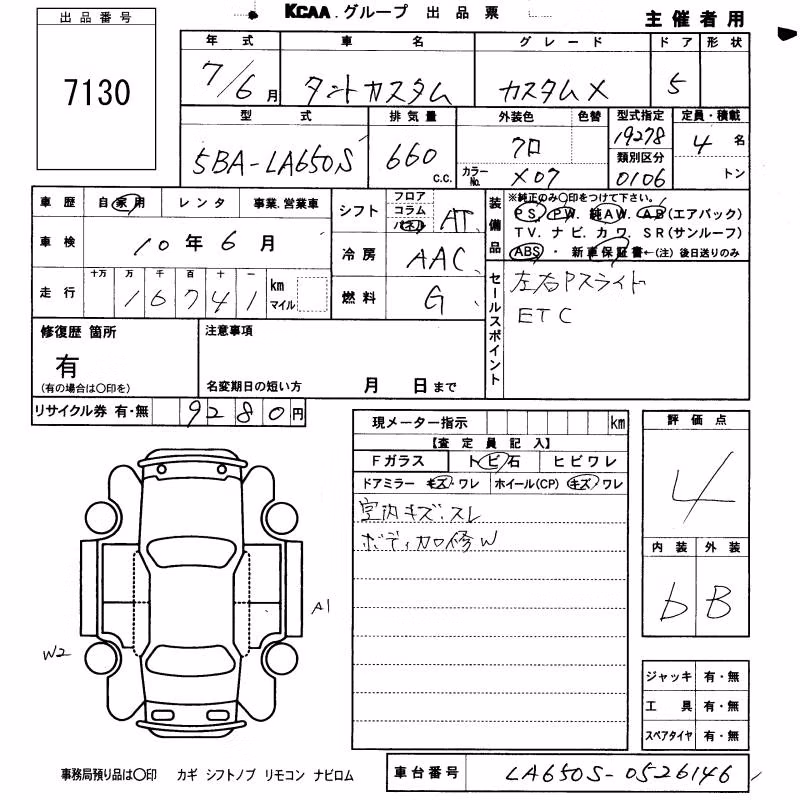 KCAA グループ 出品票
主催者用
出品番号
7130
年式 車名 グレード ドア 形状
7/6月 タントカスタム カスタムX 5
型式 排気量 外装色 色替 型式指定 定員・積載
5BA-LA650S 660 c.c. クロ 19278 4名
カラーNo. X07 類別区分 0106 トン
車歴 自家用 レンタ 事業.営業車
シフト フロア コラム パネル AT
車検 10年6月
冷房 AAC
走行 十万 万 千 百 十 一
16741 km マイル
燃料 G
装備品
※純正のみ〇印をつけて下さい。
PS. PW. 純AW. AB(エアバック)
TV. ナビ. カワ. SR(サンルーフ)
ABS ・ 新車保証書←(注) 後日送りのみ
セールスポイント
左右Pスライド
ETC
修復歴 箇所
有
(有の場合は〇印を)
注意事項
名変期日の短い方 月 日まで
リサイクル券 有・無 9280円
現メーター指示 km
【査定員記入】
Fガラス トビ石 ヒビワレ
ドアミラー キズ・ワレ ホイール(CP) キズ・ワレ
室内キズ.スレ
ボディ加修W
評価点
4
内装 外装
b B
A1
W2
ジャッキ 有・無
工具 有・無
スペアタイヤ 有・無
事務局預り品は〇印 カギ シフトノブ リモコン ナビロム
車台番号 LA650S-0526146